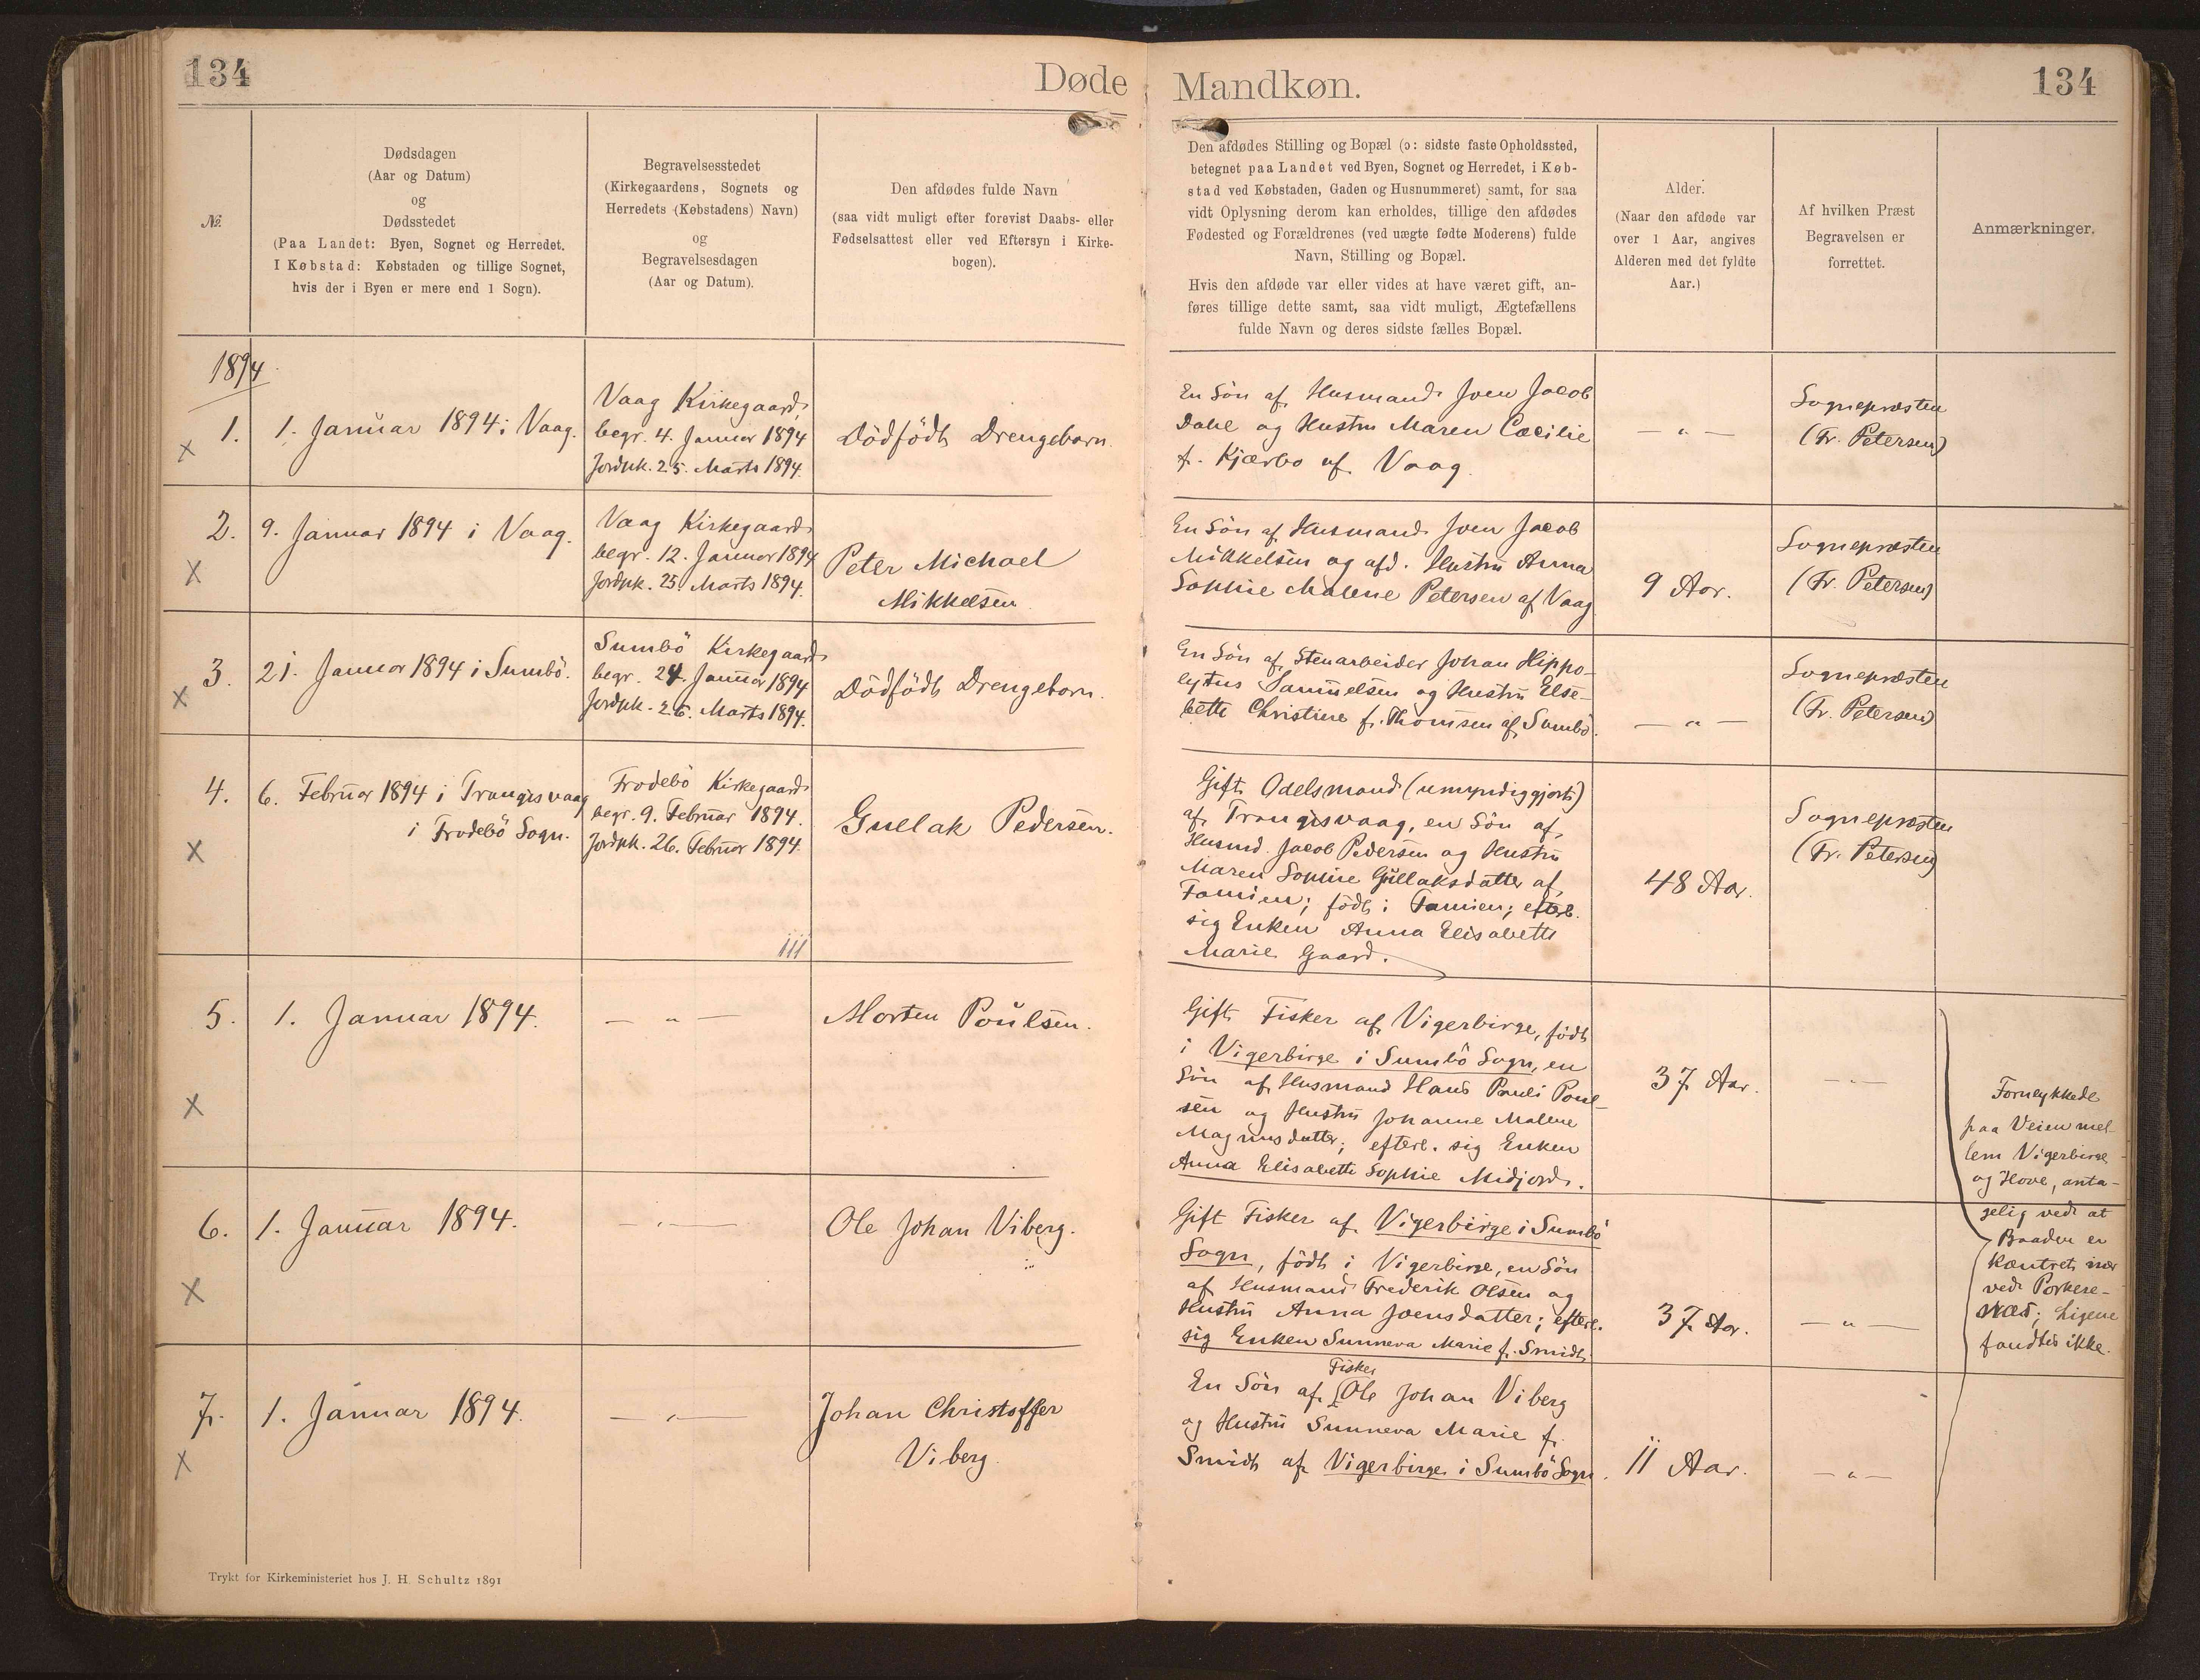 134
Døde
Mandkøn.
134
№
Dødsdagen
(Aar og Datum)
og
Dødsstedet
(Paa Landet: Byen, Sognet og Herredet.
I Købstad: Købstaden og tillige Sognet,
hvis der i Byen er mere end 1 Sogn).
Begravelsesstedet
(Kirkegaardens, Sognets og
Herredets (Købstadens) Navn)
og
Begravelsesdagen
(Aar og Datum).
Den afdødes fulde Navn
(saa vidt muligt efter forevist Daabs- eller
Fødselsattest eller ved Eftersyn i Kirke-
bogen).
Den afdødes Stilling og Bopæl (ɔ: sidste faste Opholdssted,
betegnet paa Landet ved Byen, Sognet og Herredet, i Køb-
stad ved Købstaden, Gaden og Husnummeret) samt, for saa
vidt Oplysning derom kan erholdes, tillige den afdødes
Fødested og Forældrenes (ved uægte fødte Moderens) fulde
Navn, Stilling og Bopæl.
Hvis den afdøde var eller vides at have været gift, an-
føres tillige dette samt, saa vidt muligt, Ægtefællens
fulde Navn og deres sidste fælles Bopæl.
Alder.
(Naar den afdøde var
over 1 Aar, angives
Alderen med det fyldte
Aar.)
Af hvilken Præst
Begravelsen er
forrettet.
Anmærkninger.
1894
1.
X
1. Januar 1894 i Vaag.
Vaag Kirkegaard,
begr. 4. Januar 1894
Jordpk. 25. Marts 1894.
Dødfødt Drengebarn.
En Søn af Husmand Joen Jacob
Dahl og Hustru Maren Cæcilie
f. Kjærbo af Vaag.
— " —
Sognepræsten
(Fr. Petersen)
2.
X
9. Januar 1894 i Vaag.
Vaag Kirkegaard
begr. 12. Januar 1894
Jordpk. 25. Marts 1894.
Peter Michael
Mikkelsen.
En Søn af Husmand Joen Jacob
Mikkelsen og afd. Hustru Anna
Sophie Malene Petersen af Vaag
9 Aar.
Sognepræsten
(Fr. Petersen)
3.
X
21. Januar 1894 i Sumbö.
Sumbö Kirkegaard
begr. 24. Januar 1894
Jordpk. 26. Marts 1894.
Dödfödt Drengebarn.
En Sön af Stenarbeider Johan Hippo-
lytus Samuelsen og Hustru Else-
beth Christine f. Thomsen af Sumbö.
— " —
Sognepræsten
(Fr. Petersen)
4.
X
6. Februar 1894 i Trangisvaag
i Frodebö Sogn.
Frodebö Kirkegaard
begr. 9. Februar 1894.
Jordpk. 26. Februar 1894.
Gullak Pedersen.
Gift Odelsmand (umyndiggjort)
af Trangisvaag, en Sön af
Husmd. Jacob Pedersen og Hustru
Maren Sophie Gullaksdatter af
Famien; födt i Famien; efterl.
sig Enken Anna Elisabeth
Marie Gaard.
48 Aar.
Sognepræsten
(Fr. Petersen)
5.
X
1. Januar 1894.
— " —
Morten Poulsen.
Gift Fisker af Vigerbirge, födt
i Vigerbirge i Sumbö Sogn, en
Sön af Husmand Hans Pauli Poul-
sen og Hustru Johanne Malene
Magnusdatter; efterl. sig Enken
Anna Elisabeth Sophie Midjord.
37 Aar.
— " —
Forulykkede
paa Veien mel-
lem Vigerbirge
og Hove, anta-
gelig ved at
Baaden er
kæntret nær
ved Porkere-
næs; Ligene
fandtes ikke.
6.
X
1. Januar 1894.
— " —
Ole Johan Viberg.
Gift Fisker af Vigerbirge i Sumbö
Sogn, födt i Vigerbirge, en Sön
af Husmand Frederik Olsen og
Hustru Anna Joensdatter; efterl.
sig Enken Sunneva Marie f. Smidt
37 Aar.
— " —
7.
X
1. Januar 1894.
— " —
Johan Christoffer
Viberg.
Fisker
En Sön af Ole Johan Viberg
og Hustru Sunneva Marie f.
Smidt af Vigerbirge i Sumbö Sogn.
11 Aar.
— " —
Trykt for Kirkeministeriet hos J. H. Schultz 1891